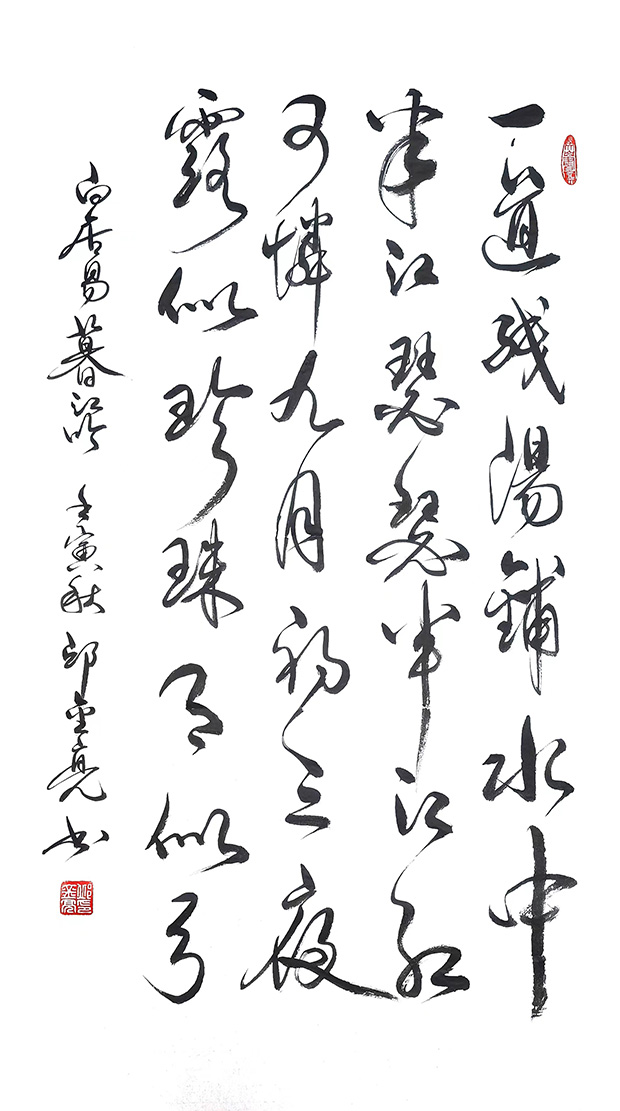 一道残陽鋪水中
半江瑟瑟半江红
可憐九月初三夜
露似珍珠月似弓
白居易暮江吟 壬寅秋 邱金亮书